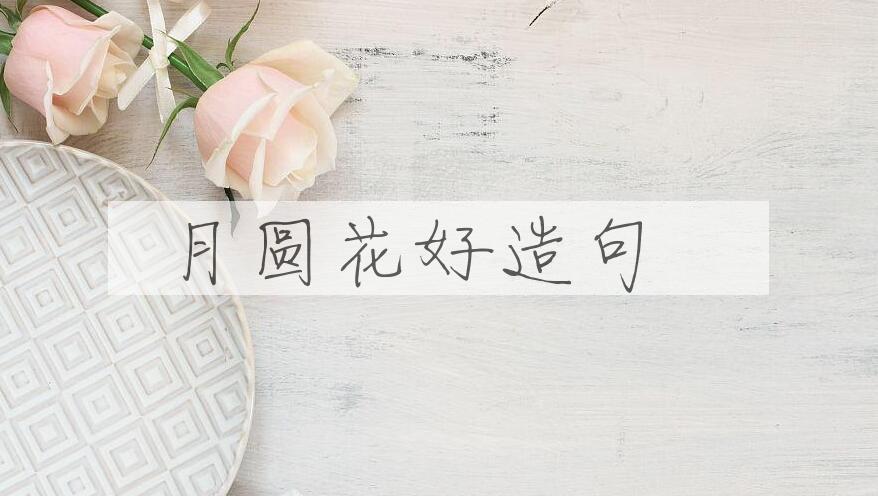 月圆花好造句